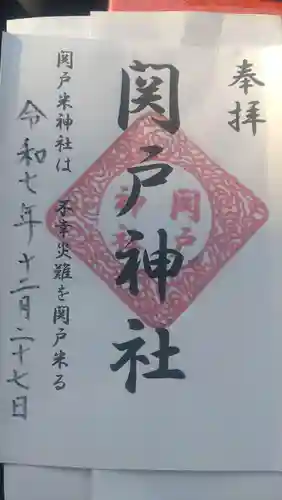 奉拝
関戸神社
関戸神社
関戸米神社は 不幸災難を関戸米る
令和七年十二月二十七日